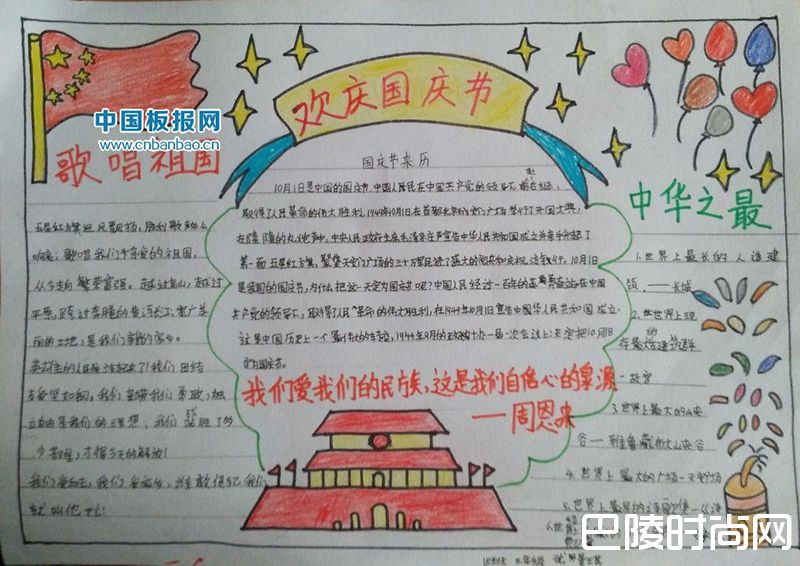 中国板报网
www.cnbanbao.cn
歌唱祖国
五星红旗迎风飘扬，胜利歌声多么
响亮；歌唱我们亲爱的祖国，
从今走向繁荣富强。越过高山，越过
平原，跨过奔腾的黄河长江；宽广美
丽的土地，是我们亲爱的家乡。
英雄的人民站起来了！我们团结
友爱坚如钢。
我们
勤劳我们勇敢，独
立自由是我们的理想；我们战胜了多
少苦难，才得今天的解放！
我们爱和平，我们爱家乡，谁敢侵犯我们
就叫他
欢庆国庆节
国庆节来历
10月1日是中国的国庆节.中国人民在中国共产党的领导下,前赴后继,
取得了人民革命的伟大胜利,1949年10月1日在首都北京天安门广场举行了开国大典,
在隆隆的礼炮声中,中央人民政府主席毛泽东庄严宣告中华人民共和国成立并亲手升起了
第一面五星红旗,聚集天安门广场的三十万军民进行了盛大的阅兵和庆祝游行.10月1日
是我国的国庆节,为什么把这一天定为国庆节呢?中国人民经过一百年的英勇奋战在中国
共产党的领导下,取得了人民革命的伟大胜利,在1949年10月1日宣告中国华人民共和国成立.
这是中国历史上一个最伟大的转变,1949年9月的政协一次会议上决定把10月1日
定为国庆节.
我们爱我们的民族，这是我们自信心的泉源
——周恩来
中华之最
1.世界上最长的人造建
筑.——长城
2.世界上现
存最大的建筑群
—故宫
3.世界上最大的峡
谷——雅鲁藏布大峡谷
4.世界上最大的广场—天安门广场
5.世界上最早的
6.世
巴陵时尚网